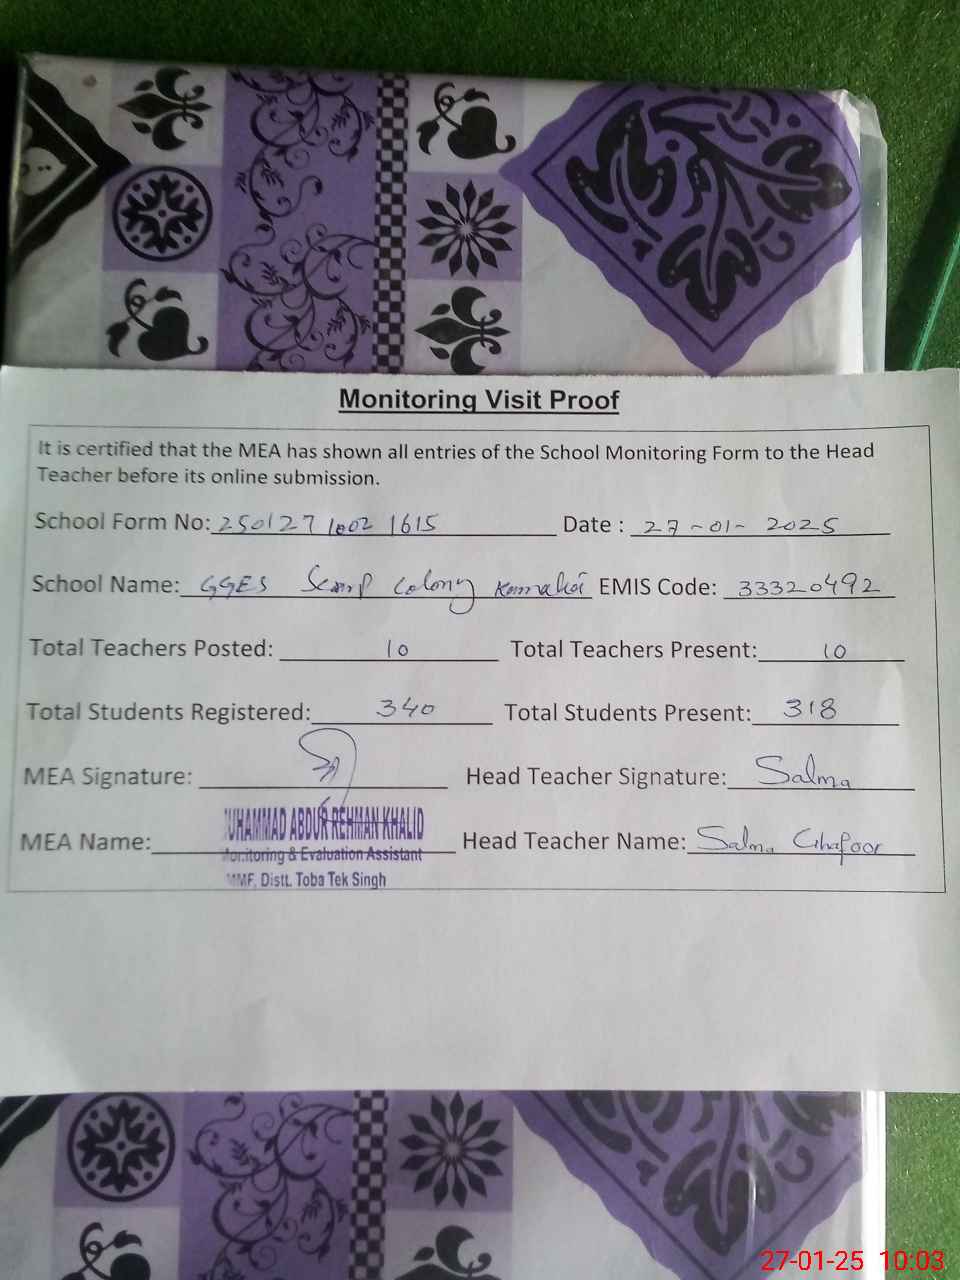 Monitoring Visit Proof
It is certified that the MEA has shown all entries of the School Monitoring Form to the Head
Teacher before its online submission.
School Form No: 250127 1002 1615 Date : 27-01-2025
School Name: GGES Scarp Colony Kamalia EMIS Code: 33320492
Total Teachers Posted: 10 Total Teachers Present: 10
Total Students Registered: 340 Total Students Present: 318
MEA Signature: Head Teacher Signature: Salma
MEA Name: MUHAMMAD ABDUR REHMAN KHALID Head Teacher Name: Salma Ghafoor
Monitoring & Evaluation Assistant
Distt. Toba Tek Singh
27-01-25 10:03